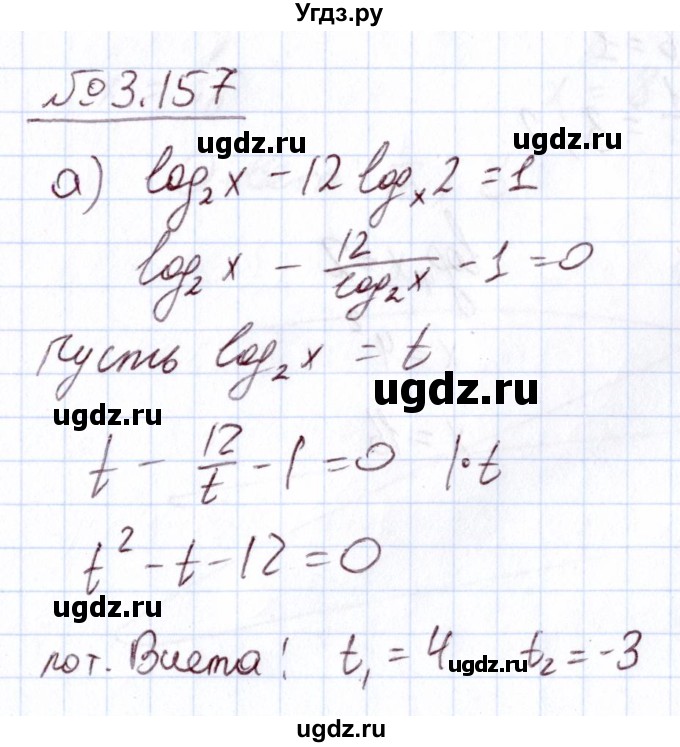 Угдз.ру
№3.157
ugdz.ru
а) log₂x - 12 log_x 2 = 1
log₂x - 12/log₂x - 1 = 0
Пусть log₂x = t
ugdz.ru
ugdz.ru
t - 12/t - 1 = 0 |·t
t² - t - 12 = 0
ugdz.ru
по т. Виета: t₁ = 4 t₂ = -3
ugdz.ru
ugdz.ru